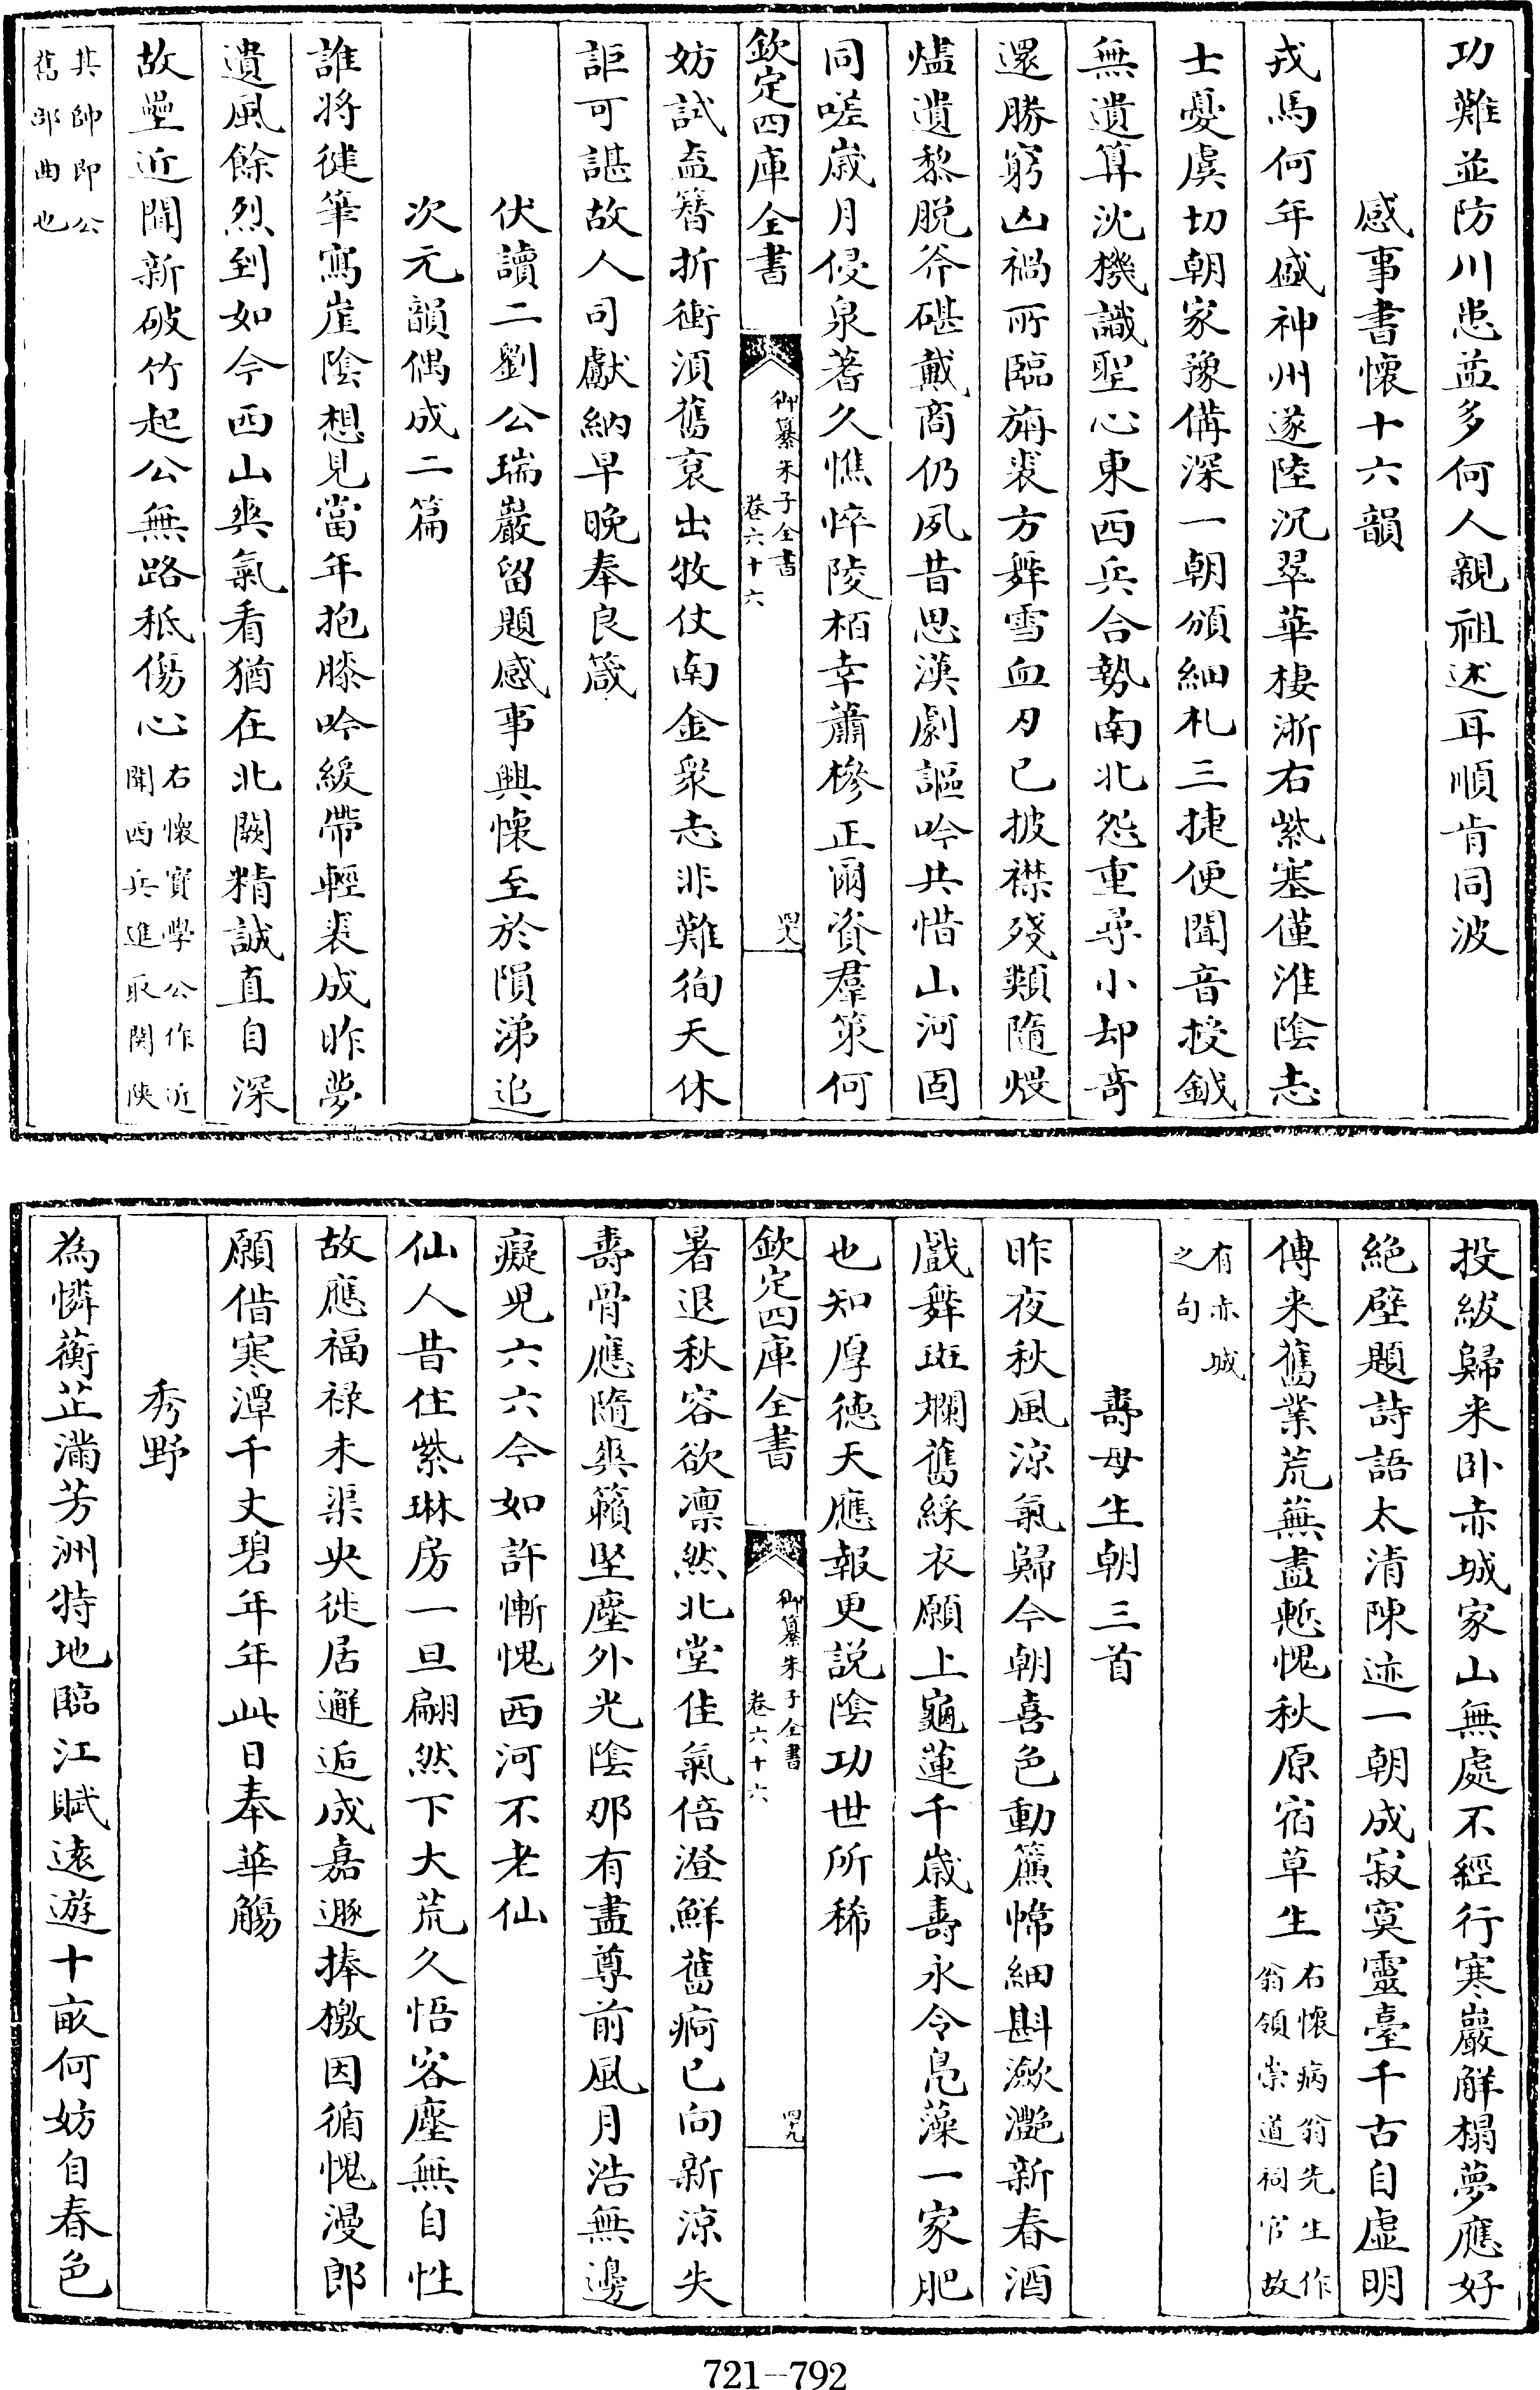 功難並防川患益多何人親祖述耳順肯同波
感事書懷十六韻
戎馬何年盛神州遂陸沉翠華棲浙右紫塞僅淮陰志
士憂虞切朝家豫備深一朝頒細札三捷便聞音授鉞
無遺算沈機識聖心東西兵合勢南北怨重尋小却奇
還勝窮凶禍所臨旃裘方舞雪血刃已披襟殘類隨煨
燼遺黎脫斧碪戴商仍夙昔思漢劇謳吟共惜山河固
同嗟歲月侵泉蓍久憔悴陵栢幸蕭槮正爾資羣策何
欽定四庫全書
御纂朱子全書
卷六十六
四八
妨試盍簪折衝須舊袞出牧仗南金衆志非難徇天休
詎可諶故人司獻納早晚奉良箴
伏讀二劉公瑞巖留題感事興懷至於隕涕追
次元韻偶成二篇
誰將健筆寫崖陰想見當年抱膝吟緩帶輕裘成昨夢
遺風餘烈到如今西山爽氣看猶在北闕精誠直自深
故壘近聞新破竹起公無路秪傷心右懷寶學公作近聞西兵進取關陝
其帥即公舊部曲也
投紱歸来卧赤城家山無處不經行寒巖解榻夢應好
絶壁題詩語太清陳迹一朝成寂寞靈臺千古自虛明
傳来舊業荒蕪盡慙愧秋原宿草生右懷病翁先生作翁領崇道祠官故
有赤城之句
壽母生朝三首
昨夜秋風涼氣歸今朝喜色動簾幃細斟瀲灔新春酒
戲舞斑斕舊綵衣願上龜蓮千歲壽永令鳧藻一家肥
也知厚德天應報更說陰功世所稀
欽定四庫全書
御纂朱子全書
卷六十六
四九
暑退秋容欲凛然北堂佳氣倍澄鮮舊痾已向新涼失
壽骨應隨爽籟堅塵外光陰那有盡尊前風月浩無邊
癡兒六六今如許慚愧西河不老仙
仙人昔住紫琳房一旦翩然下大荒久悟客塵無自性
故應福祿未渠央徙居邂逅成嘉遯捧檄因循愧漫郎
願借寒潭千丈碧年年此日奉華觴
秀野
為憐蘅芷滿芳洲特地臨江賦遠遊十畝何妨自春色
721--792